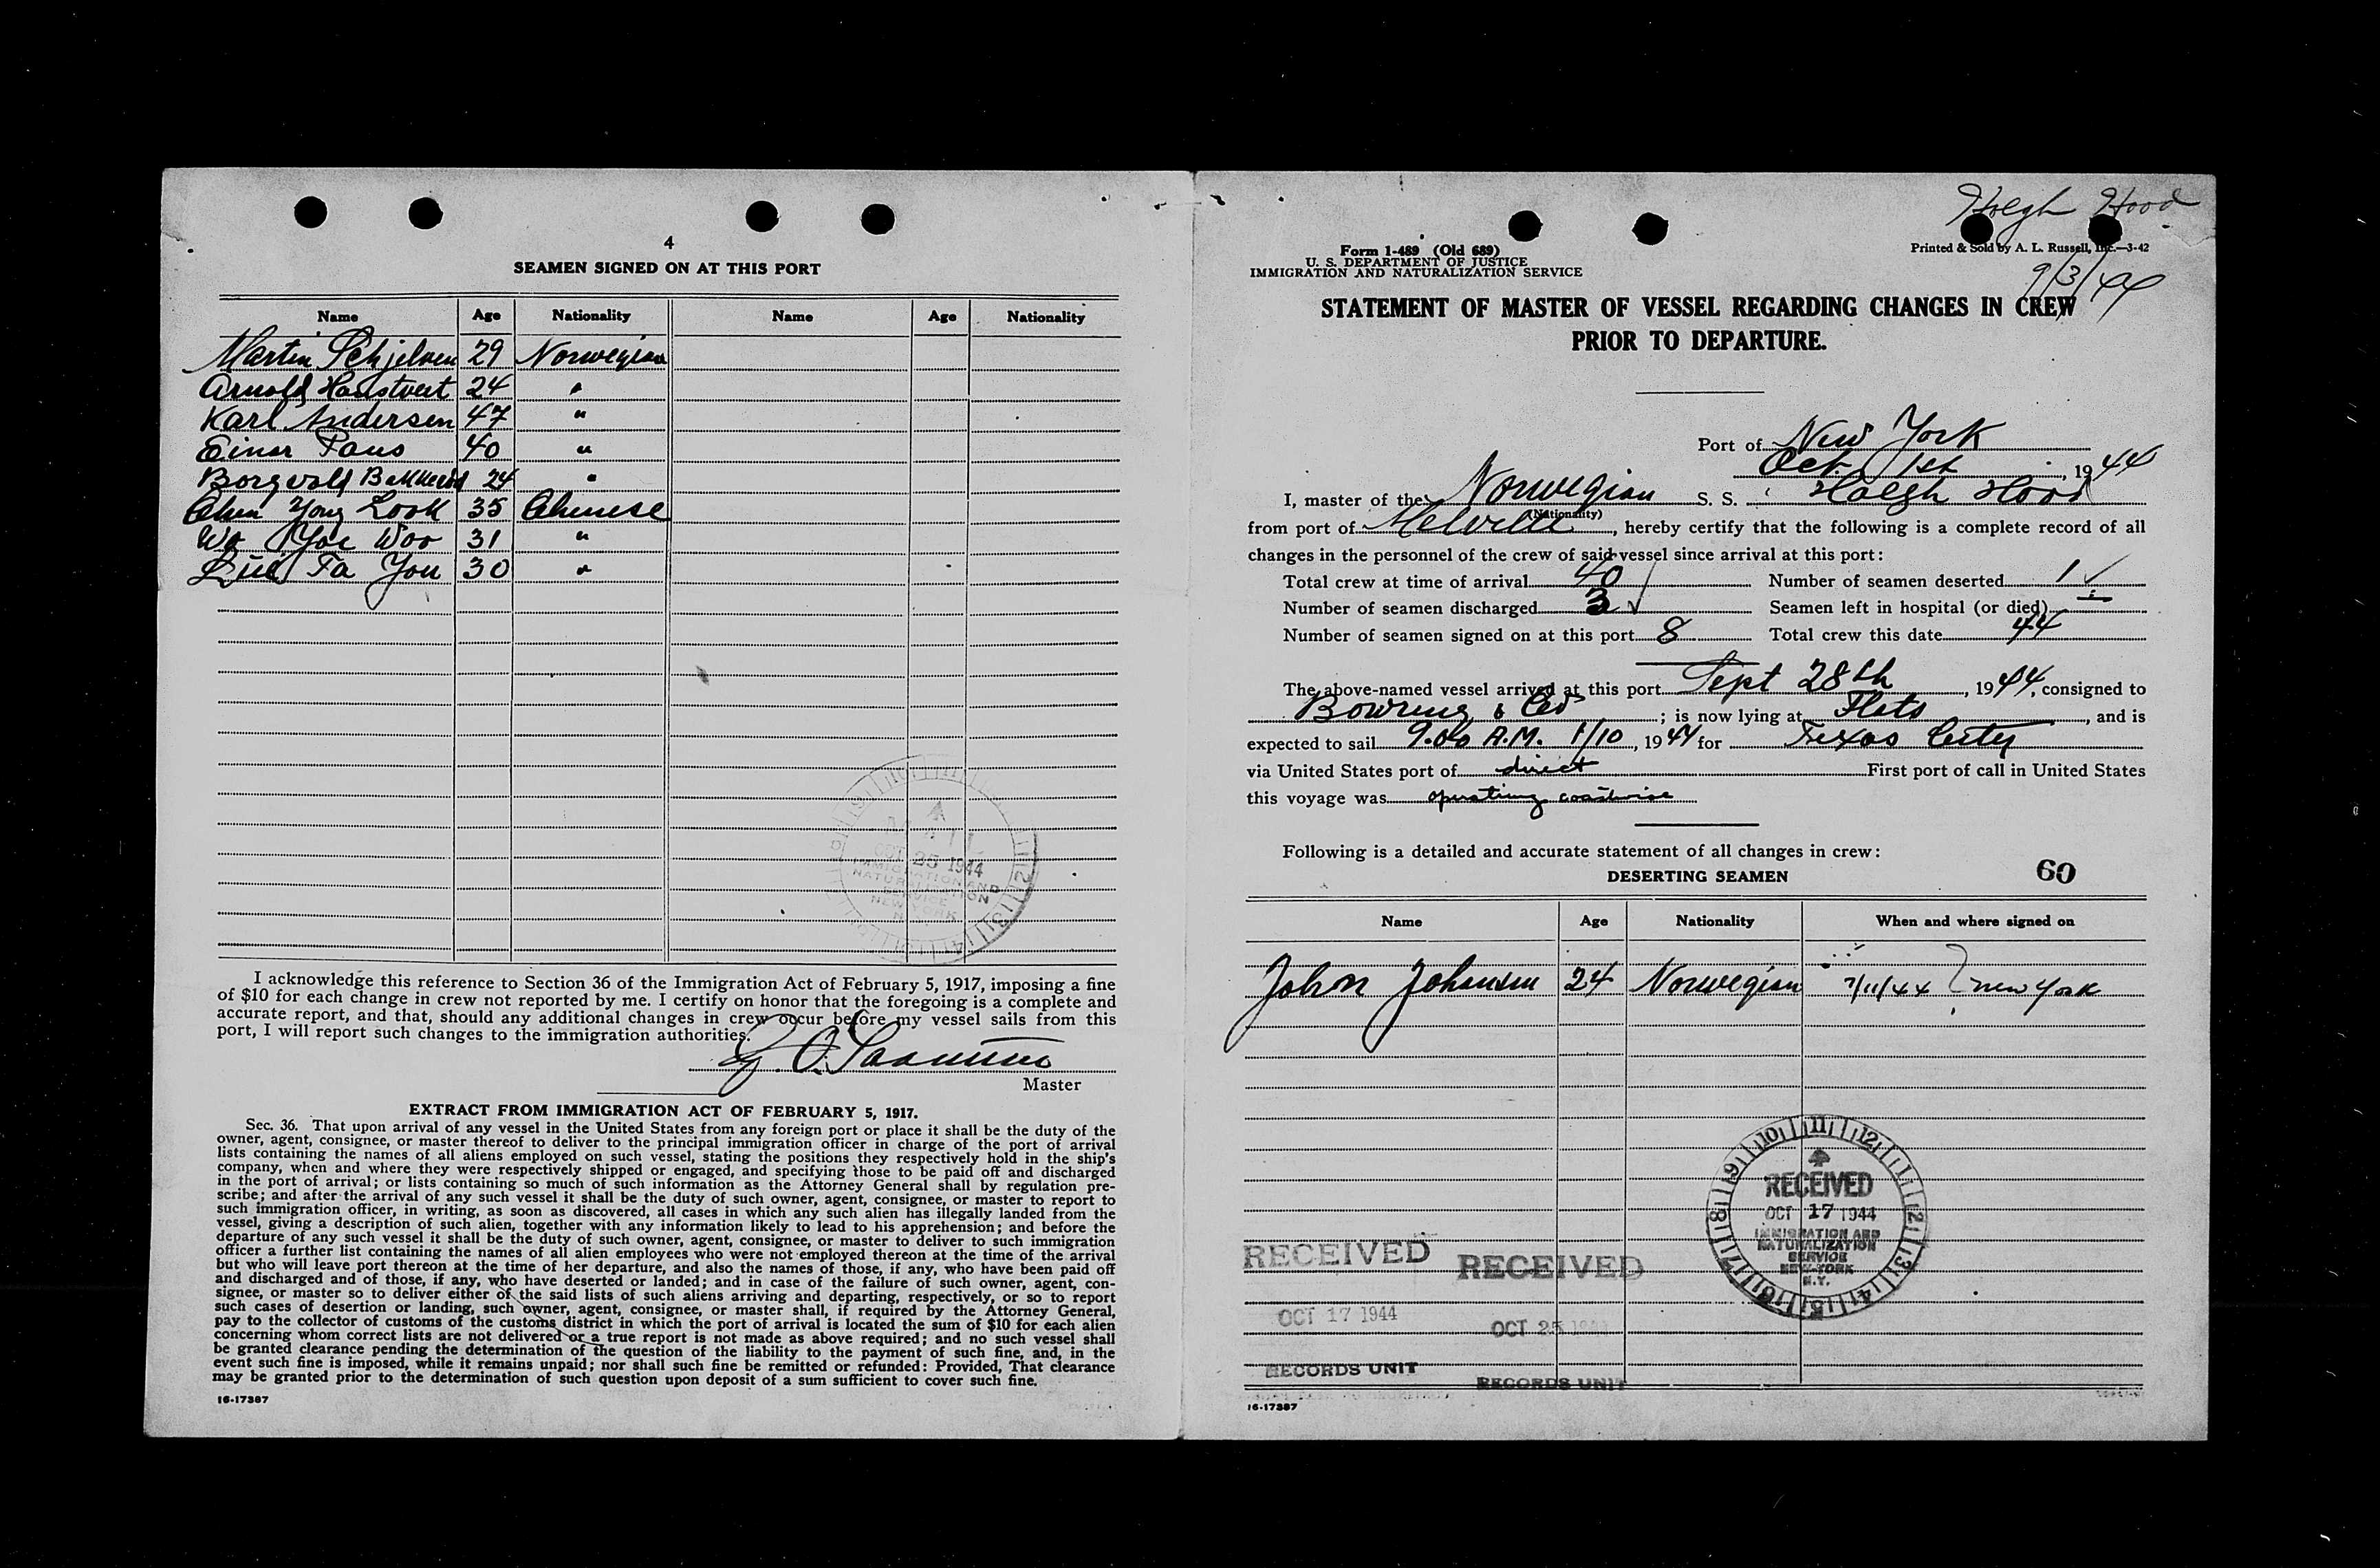 4
SEAMEN SIGNED ON AT THIS PORT
Name Age Nationality Name Age Nationality
Martin Schjelven 29 Norwegian
Arnold Haustveit 24 "
Karl Andersen 47 "
Einar Paus 40 "
Borgvald 24 "
Chun Yong Look 35 Chinese
Wo Yoe Woo 31 "
Fa You 30 "
OCT 25 1944
IMMIGRATION AND
NATURALIZATION
SERVICE
NEW YORK
I acknowledge this reference to Section 36 of the Immigration Act of February 5, 1917, imposing a fine
of $10 for each change in crew not reported by me. I certify on honor that the foregoing is a complete and
accurate report, and that, should any additional changes in crew occur before my vessel sails from this
port, I will report such changes to the immigration authorities.
Master
EXTRACT FROM IMMIGRATION ACT OF FEBRUARY 5, 1917.
Sec. 36. That upon arrival of any vessel in the United States from any foreign port or place it shall be the duty of the
owner, agent, consignee, or master thereof to deliver to the principal immigration officer in charge of the port of arrival
lists containing the names of all aliens employed on such vessel, stating the positions they respectively hold in the ship's
company, when and where they were respectively shipped or engaged, and specifying those to be paid off and discharged
in the port of arrival; or lists containing so much of such information as the Attorney General shall by regulation pre-
scribe; and after the arrival of any such vessel it shall be the duty of such owner, agent, consignee, or master to report to
such immigration officer, in writing, as soon as discovered, all cases in which any such alien has illegally landed from the
vessel, giving a description of such alien, together with any information likely to lead to his apprehension; and before the
departure of any such vessel it shall be the duty of such owner, agent, consignee, or master to deliver to such immigration
officer a further list containing the names of all alien employees who were not employed thereon at the time of the arrival
but who will leave port thereon at the time of her departure, and also the names of those, if any, who have been paid off
and discharged and of those, if any, who have deserted or landed; and in case of the failure of such owner, agent, con-
signee, or master so to deliver either of the said lists of such aliens arriving and departing, respectively, or so to report
such cases of desertion or landing, such owner, agent, consignee, or master shall, if required by the Attorney General,
pay to the collector of customs of the customs district in which the port of arrival is located the sum of $10 for each alien
concerning whom correct lists are not delivered or a true report is not made as above required; and no such vessel shall
be granted clearance pending the determination of the question of the liability to the payment of such fine, and, in the
event such fine is imposed, while it remains unpaid; nor shall such fine be remitted or refunded: Provided, That clearance
may be granted prior to the determination of such question upon deposit of a sum sufficient to cover such fine.
16-17387
Hoegh Hood
Form 1-489 (Old 689)
U. S. DEPARTMENT OF JUSTICE
IMMIGRATION AND NATURALIZATION SERVICE
Printed & Sold by A. L. Russell, Inc.—3-42
9/3/44
STATEMENT OF MASTER OF VESSEL REGARDING CHANGES IN CREW
PRIOR TO DEPARTURE.
Port of New York
Oct. 1st, 1944
I, master of the Norwegian S. S. Hoegh Hood
(Nationality)
from port of Melville, hereby certify that the following is a complete record of all
changes in the personnel of the crew of said vessel since arrival at this port:
Total crew at time of arrival 40 Number of seamen deserted 1
Number of seamen discharged 3 Seamen left in hospital (or died)
Number of seamen signed on at this port 8 Total crew this date 44
The above-named vessel arrived at this port Sept 28th, 1944, consigned to
Bowring & Co; is now lying at Flats, and is
expected to sail 9.00 A.M. 1/10, 1944 for Texas City
via United States port of direct First port of call in United States
this voyage was operating coastwise
Following is a detailed and accurate statement of all changes in crew:
DESERTING SEAMEN 60
Name Age Nationality When and where signed on
John Johansen 24 Norwegian 7/11/44 New York
RECEIVED
OCT 17 1944
IMMIGRATION AND
NATURALIZATION
SERVICE
NEW YORK
N.Y.
RECEIVED RECEIVED
OCT 17 1944 OCT 25 1944
RECORDS UNIT RECORDS UNIT
16-17387